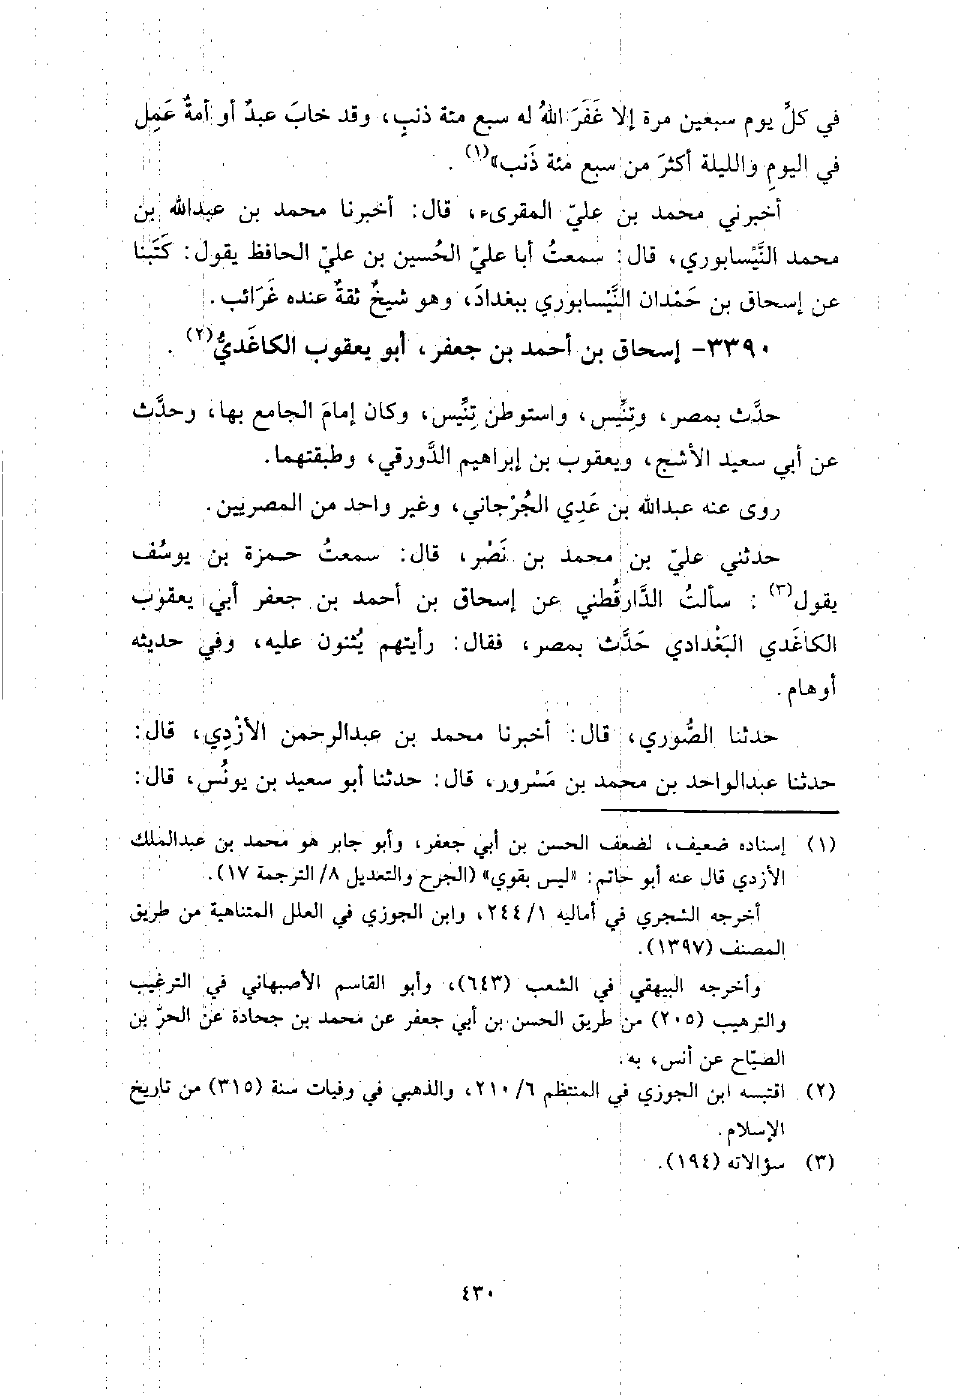 في كلِّ يوم سبعين مرة إلا غَفَرَ اللهُ له سبع مئة ذنبٍ، وقد خابَ عبدٌ أو أمةٌ عَمِل
في اليومِ والليلة أكثرَ من سبع مئة ذَنب»(١) .
أخبرني محمد بن عليّ المقرىء، قال: أخبرنا محمد بن عبدالله بن
محمد النَّيْسابوري، قال: سمعتُ أبا عليّ الحُسين بن عليّ الحافظ يقول: كَتَبنا
عن إسحاق بن حَمْدان النَّيْسابوري ببغدادَ، وهو شيخٌ ثقةٌ عنده غَرَائب.
٣٣٩٠- إسحاق بن أحمد بن جعفر، أبو يعقوب الكاغَديُّ(٢) .
حدَّث بمصر، وتِنِّيس، واستوطن تِنِّيس، وكان إمامَ الجامع بها، وحدَّث
عن أبي سعيد الأشج، ويعقوب بن إبراهيم الدَّورقي، وطبقتهما.
روى عنه عبدالله بن عَدِي الجُرْجاني، وغير واحد من المصريين.
حدثني عليّ بن محمد بن نَصْر، قال: سمعتُ حمزة بن يوسُف
يقول(٣) : سألتُ الدَّارقُطني عن إسحاق بن أحمد بن جعفر أبي يعقوب
الكاغَدي البَغْدادي حَدَّث بمصر، فقال: رأيتهم يُثنون عليه، وفي حديثه
أوهام.
حدثنا الصُّوري، قال: أخبرنا محمد بن عبدالرحمن الأزْدِي، قال:
حدثنا عبدالواحد بن محمد بن مَسْرور، قال: حدثنا أبو سعيد بن يونُس، قال:
(١) إسناده ضعيف، لضعف الحسن بن أبي جعفر، وأبو جابر هو محمد بن عبدالملك
الأزدي قال عنه أبو حاتم: «ليس بقوي» (الجرح والتعديل ٨/ الترجمة ١٧).
أخرجه الشجري في أماليه ١/ ٢٤٤، وابن الجوزي في العلل المتناهية من طريق
المصنف (١٣٩٧).
وأخرجه البيهقي في الشعب (٦٤٣)، وأبو القاسم الأصبهاني في الترغيب
والترهيب (٢٠٥) من طريق الحسن بن أبي جعفر عن محمد بن جحادة عن الحرّ بن
الصيّاح عن أنس، به.
(٢) اقتبسه ابن الجوزي في المنتظم ٦/ ٢١٠، والذهبي في وفيات سنة (٣١٥) من تاريخ
الإسلام.
(٣) سؤالاته (١٩٤).
٤٣٠